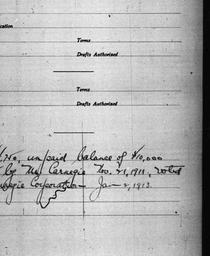 cation
Terms
Drafts Authorized
Terms
Drafts Authorized
unpaid balance of $10,000
by Mr Carnegie Nov. 21, 1911, voted
negie Corporation - Jan 2, 1913.